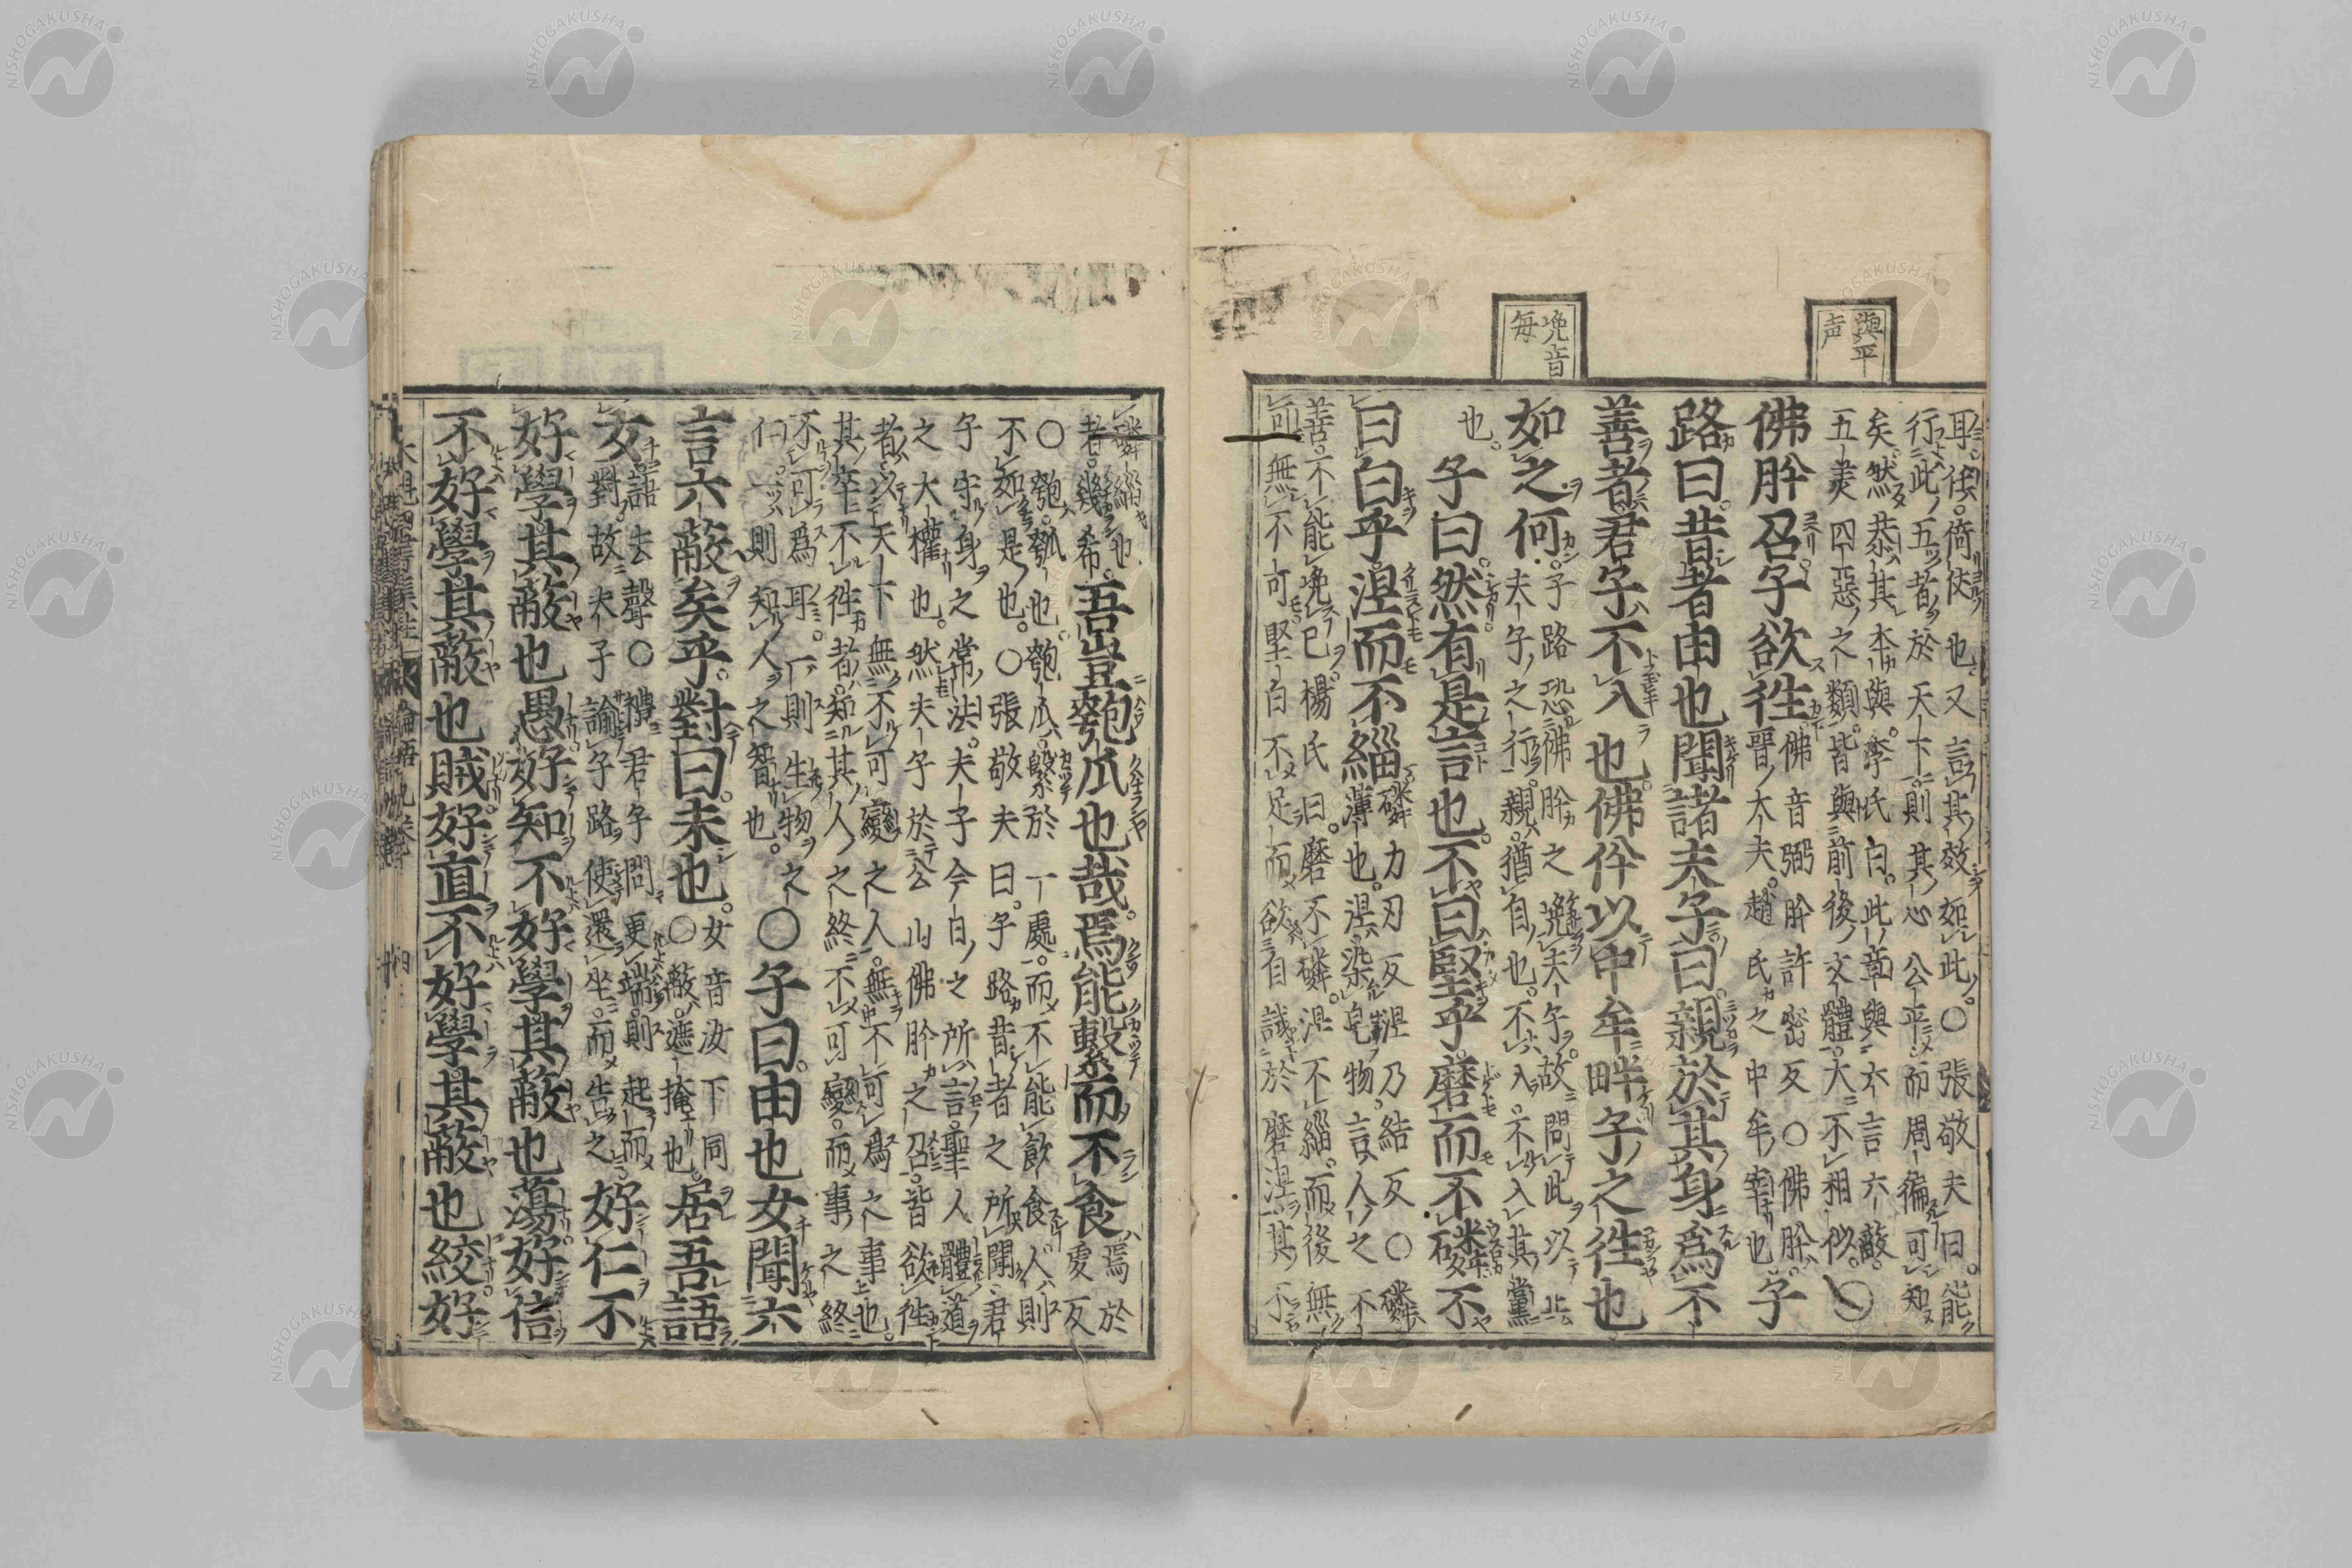 與平
声
浼音
每
耳。任。倚仗也又言其效如此。○張敬夫曰。能
行此五者於天下。則其心公平而周徧可知
矣。然恭其本與。李氏曰。此章與六言六蔽。
五美四惡之類。皆與前後文體大不相似。○
佛肸召。子欲往。佛音弼肸許密反○佛肸。
晉大夫。趙氏之中牟宰也 子
路曰。昔者由也聞諸夫子曰。親於其身爲不
善者。君子不入也。佛肸以中牟畔。子之往也
如之何。子路恐佛肸之浼夫子。故問此以止
夫子之行。親。猶自也。不入。不入其黨
也。子曰。然。有是言也。不曰堅乎。磨而不磷。不
曰白乎。涅而不緇。磷力刃反涅乃結反○磷
薄也。涅。染皂物。言人之不
善。不能浼已。楊氏曰。磨不磷。涅不緇。而後無
可無不可。堅白不足。而欲自試於磨涅。其不
磷緇也
者。幾希。吾豈匏瓜也哉。焉能繫而不食。焉於
虔反
○匏。瓠也。匏瓜繫於一處。而不能飲食。人則
不如是也。○張敬夫曰。子路昔者之所聞君
子守身之常法。夫子今日之所言。聖人體道
之大權也。然夫子於公山佛肸之召。皆欲往
者。以天下無不可變之人。無不可爲之事也。
其卒不往者。知其人之終不可變。而事之終
不可爲耳。一則生物之
仁。一則知人之智也。○子曰。由也女聞六
言六蔽矣乎。對曰。未也。女音汝下同
○蔽。遮掩也。居。吾語
女。語去聲○禮君子問更端。則起而
對。故夫子諭子路。使還坐。而告之 好仁不
好學。其蔽也愚。好知不好學。其蔽也蕩。好信
不好學。其蔽也賊。好直不好學。其蔽也絞。好